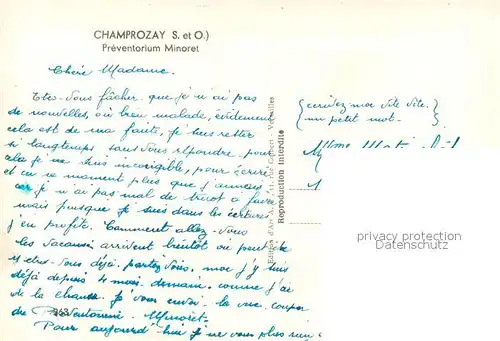 CHAMPROZAY S. et O.)
Préventorium Minoret
Chère Madame.
Etes-vous fâcher, que je n'ai pas
de nouvelles, où bien malade, évidement
cela est de ma faute, je suis rester
si longtemps sans vous répondre. pour
cela je ne suis incorigible, pour écrire
et en ce moment plus que jamais
car je n'ai pas mal de tricot à faire
mais puisque je suis dans les écritures
j'en profite. Comment allez-vous
les vacances arrivent bientôt où peut
y êtes-vous déjà. partez vous, moi j'y suis
déjà depuis 4 mois demain, comme j'ai
de la chance. Je vous envoi la vue
du Préventorium Minoret.
Pour aujourd'hui je ne vous plus rien
963
Reproduction interdite
Edition d'Art
Versailles
{écrivez-moi vite vite.}
{un petit mot.}
Mme
privacy protection
Datenschutz